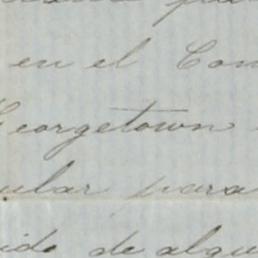 en el Con
Georgetown
ular para
ido de algu